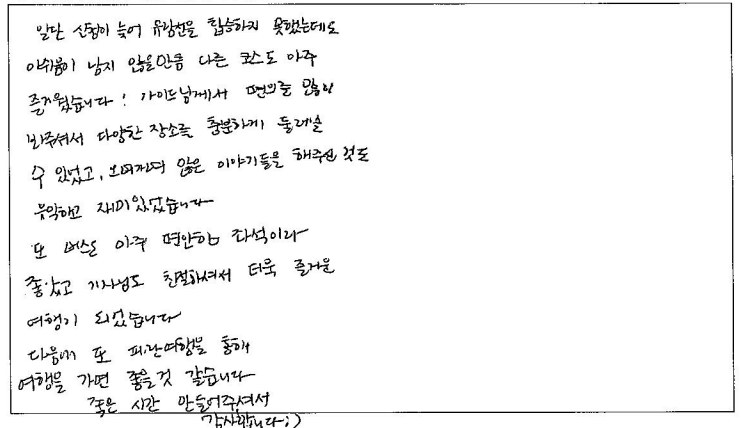 일단 신청이 늦어 유람선을 탑승하지 못했는데도
아쉬움이 남지 않을만큼 다른 코스도 아주
즐거웠습니다! 가이드님께서 편의를 많이
봐주셔서 다양한 장소를 충분하게 둘러볼
수 있었고, 오며가며 많은 이야기들을 해주신 것도
유익하고 재미있었습니다
또 버스는 아주 편안한 좌석이라
좋았고 기사님도 친절하셔서 더욱 즐거운
여행기 되었습니다
다음에 또 여행을 통해
여행을 가면 좋을것 같습니다
좋은 시간 만들어주셔서
감사합니다;)